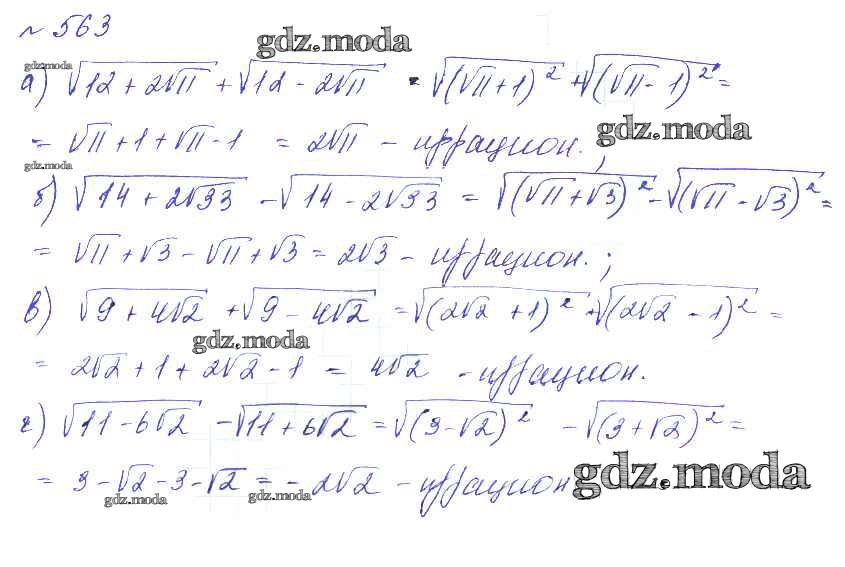 № 563
gdz.moda
gdz.moda
а) √(12 + 2√11) + √(12 - 2√11) = √((√11 + 1)²) + √((√11 - 1)²) =
= √11 + 1 + √11 - 1 = 2√11 - иррацион.;
gdz.moda
gdz.moda
б) √(14 + 2√33) - √(14 - 2√33) = √((√11 + √3)²) - √((√11 - √3)²) =
= √11 + √3 - √11 + √3 = 2√3 - иррацион.;
в) √(9 + 4√2) + √(9 - 4√2) = √((2√2 + 1)²) + √((2√2 - 1)²) =
gdz.moda
= 2√2 + 1 + 2√2 - 1 = 4√2 - иррацион.
г) √(11 - 6√2) - √(11 + 6√2) = √((3 - √2)²) - √((3 + √2)²) =
= 3 - √2 - 3 - √2 = -2√2 - иррацион
gdz.moda
gdz.moda
gdz.moda